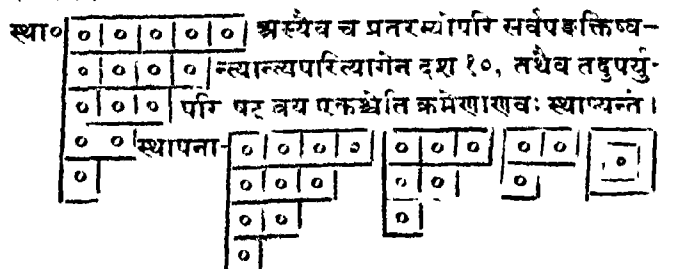 स्था० ० ० ० ० ० अस्यैव च प्रतरस्योपरि सर्वपङ्क्तिष्व–
० ० ० ० न्त्यान्त्यपरित्यागेन दश १०, तथैव तदुपर्यु-
० ० ० परि षट् त्रय एकश्चेति क्रमेणाणवः स्थाप्यन्ते।
० ० स्थापना- ० ० ० ० ० ० ० ० ० ०
० ० ० ० ० ० ०
० ० ०
०